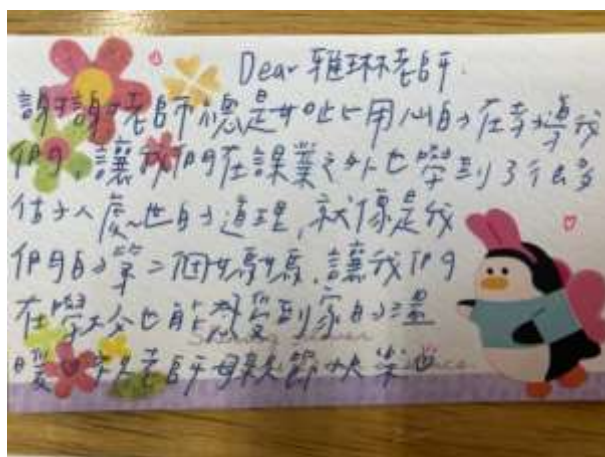 Dear 雅琳老師.
謝謝老師總是如此用心的在教導我
們,讓我們在課業之外也學到了很多
做人處世的道理,就像是我
們的第二個媽媽,讓我們
在學校也能感受到家的溫
暖 祝老師母親節快樂